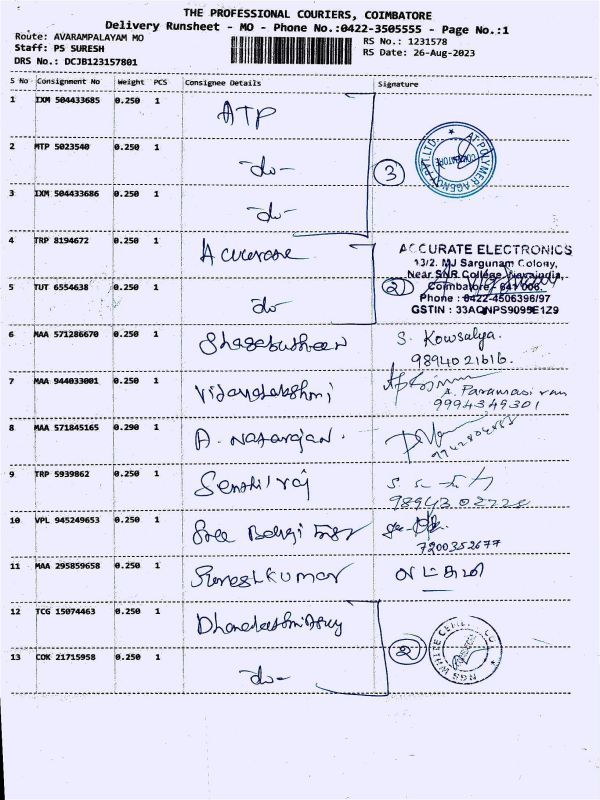 THE PROFESSIONAL COURIERS, COIMBATORE
Delivery Runsheet - MO - Phone No.:0422-3505555 - Page No.:1
Route: AVARAMPALAYAM MO
Staff: PS SURESH
DRS No.: DCJB123157801
RS No.: 1231578
RS Date: 26-Aug-2023
S No Consignment No Weight PCS Consignee Details Signature
1 IXM 504433685 0.250 1 ATP
2 MTP 5023540 0.250 1 -do-
3
AT POLYMER AGENCY PVT.LTD. COIMBATORE
3 IXM 504433686 0.250 1 -do-
4 TRP 8194672 0.250 1 Accurate
ACCURATE ELECTRONICS
13/2. MJ Sargunam Colony,
Near SNR College, Navaindia,
Coimbatore - 641 006.
Phone : 0422-4506396/97
GSTIN : 33AQNPS9099E1Z9
5 TUT 6554638 0.250 1 do- 2
6 MAA 571286670 0.250 1 S. Kowsalya.
9894021616.
7 MAA 944033001 0.250 1 Vijayalakshmi
A. Paramasivam
9994349301
8 MAA 571845165 0.290 1 A. Natarajan.
9 TRP 5939862 0.250 1 Senthil raj
10 VPL 945249653 0.250 1 Sree
7200352677
11 MAA 295859658 0.250 1 Sureshkumar
12 TCG 15074463 0.250 1
2
NGS WHITE CEMENT CO
13 COK 21715958 0.250 1 -do-